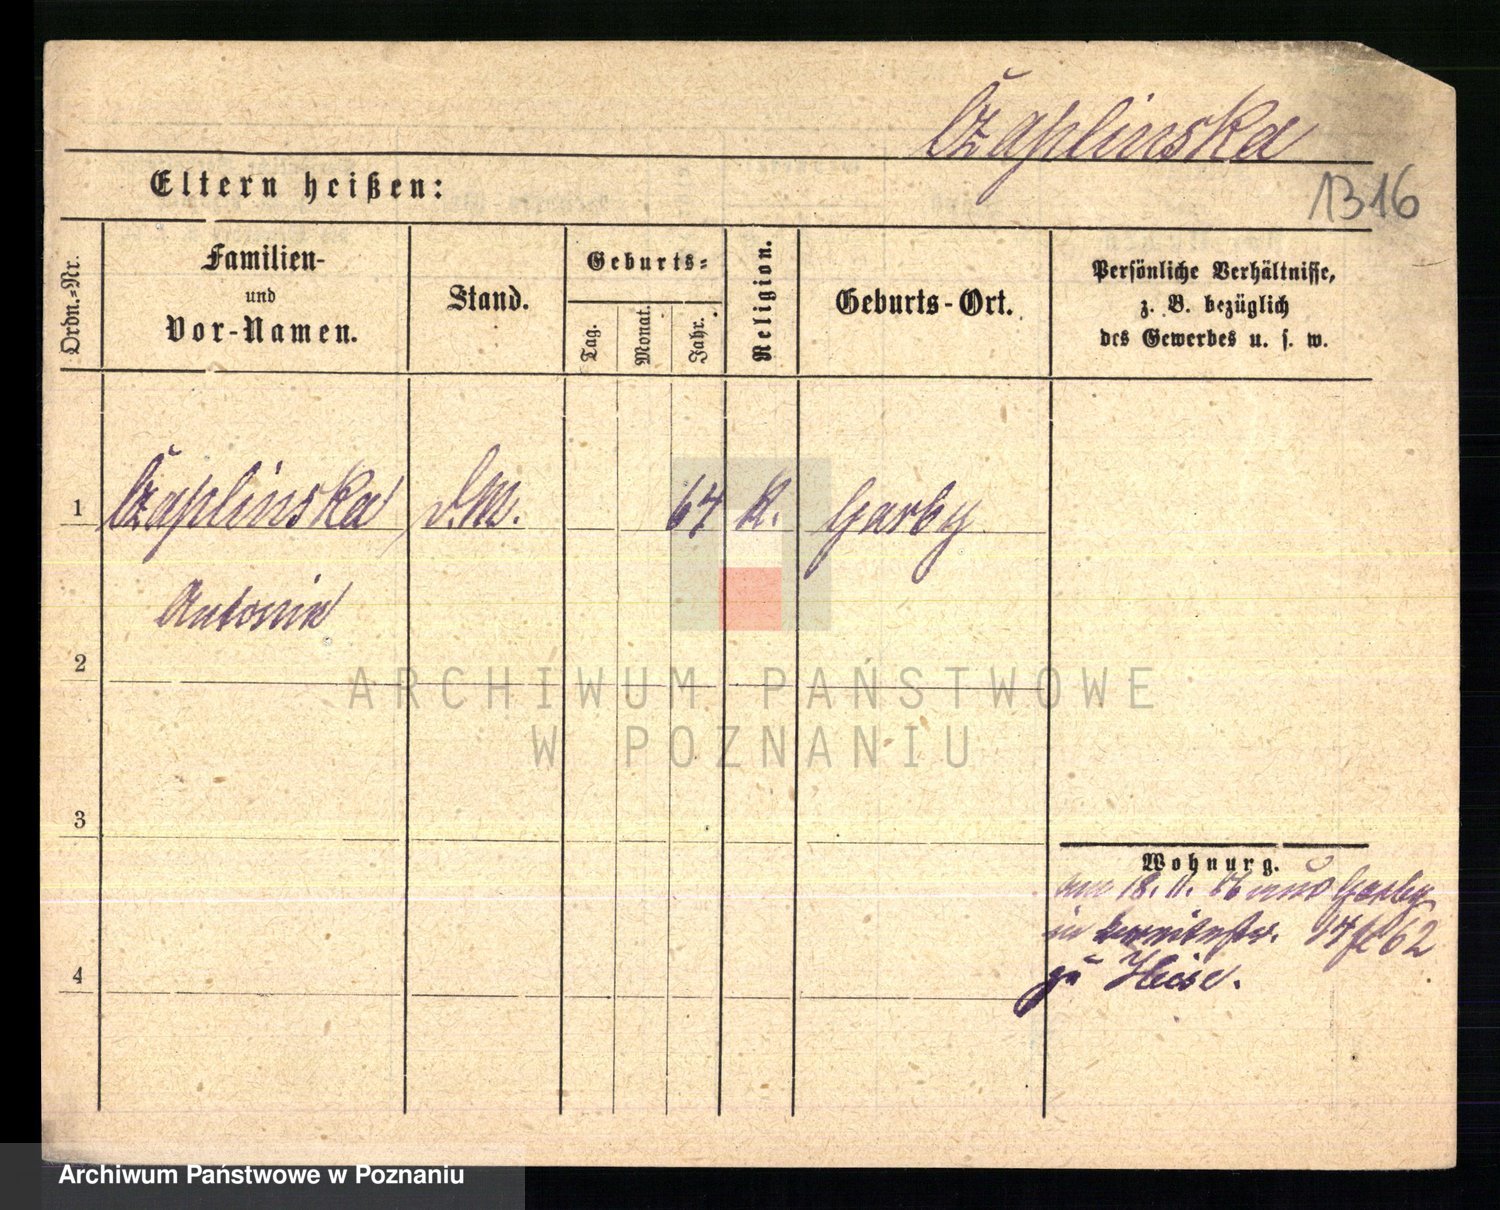 Czaplinska
1316
Eltern heißen:
Ordn.-Nr.
Familien-
und
Vor-Namen.
Stand.
Geburts-
Tag.
Monat.
Jahr.
Religion.
Geburts-Ort.
Persönliche Verhältnisse,
z. B. bezüglich
des Gewerbes u. s. w.
1 Czaplinska D.M. 64 K. Garby
Antonie
2
3
4
Wohnung.
am 18. 11. 86 aus Garby
in 14 62
zu Heise.
ARCHIWUM PAŃSTWOWE
W POZNANIU
Archiwum Państwowe w Poznaniu